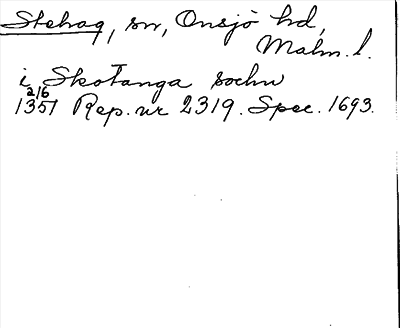 Stehag, sn, Onsjö hd,
Malm. l.
i Skotanga sochn
2/6
1351 Rep. nr 2319. Spec. 1693.